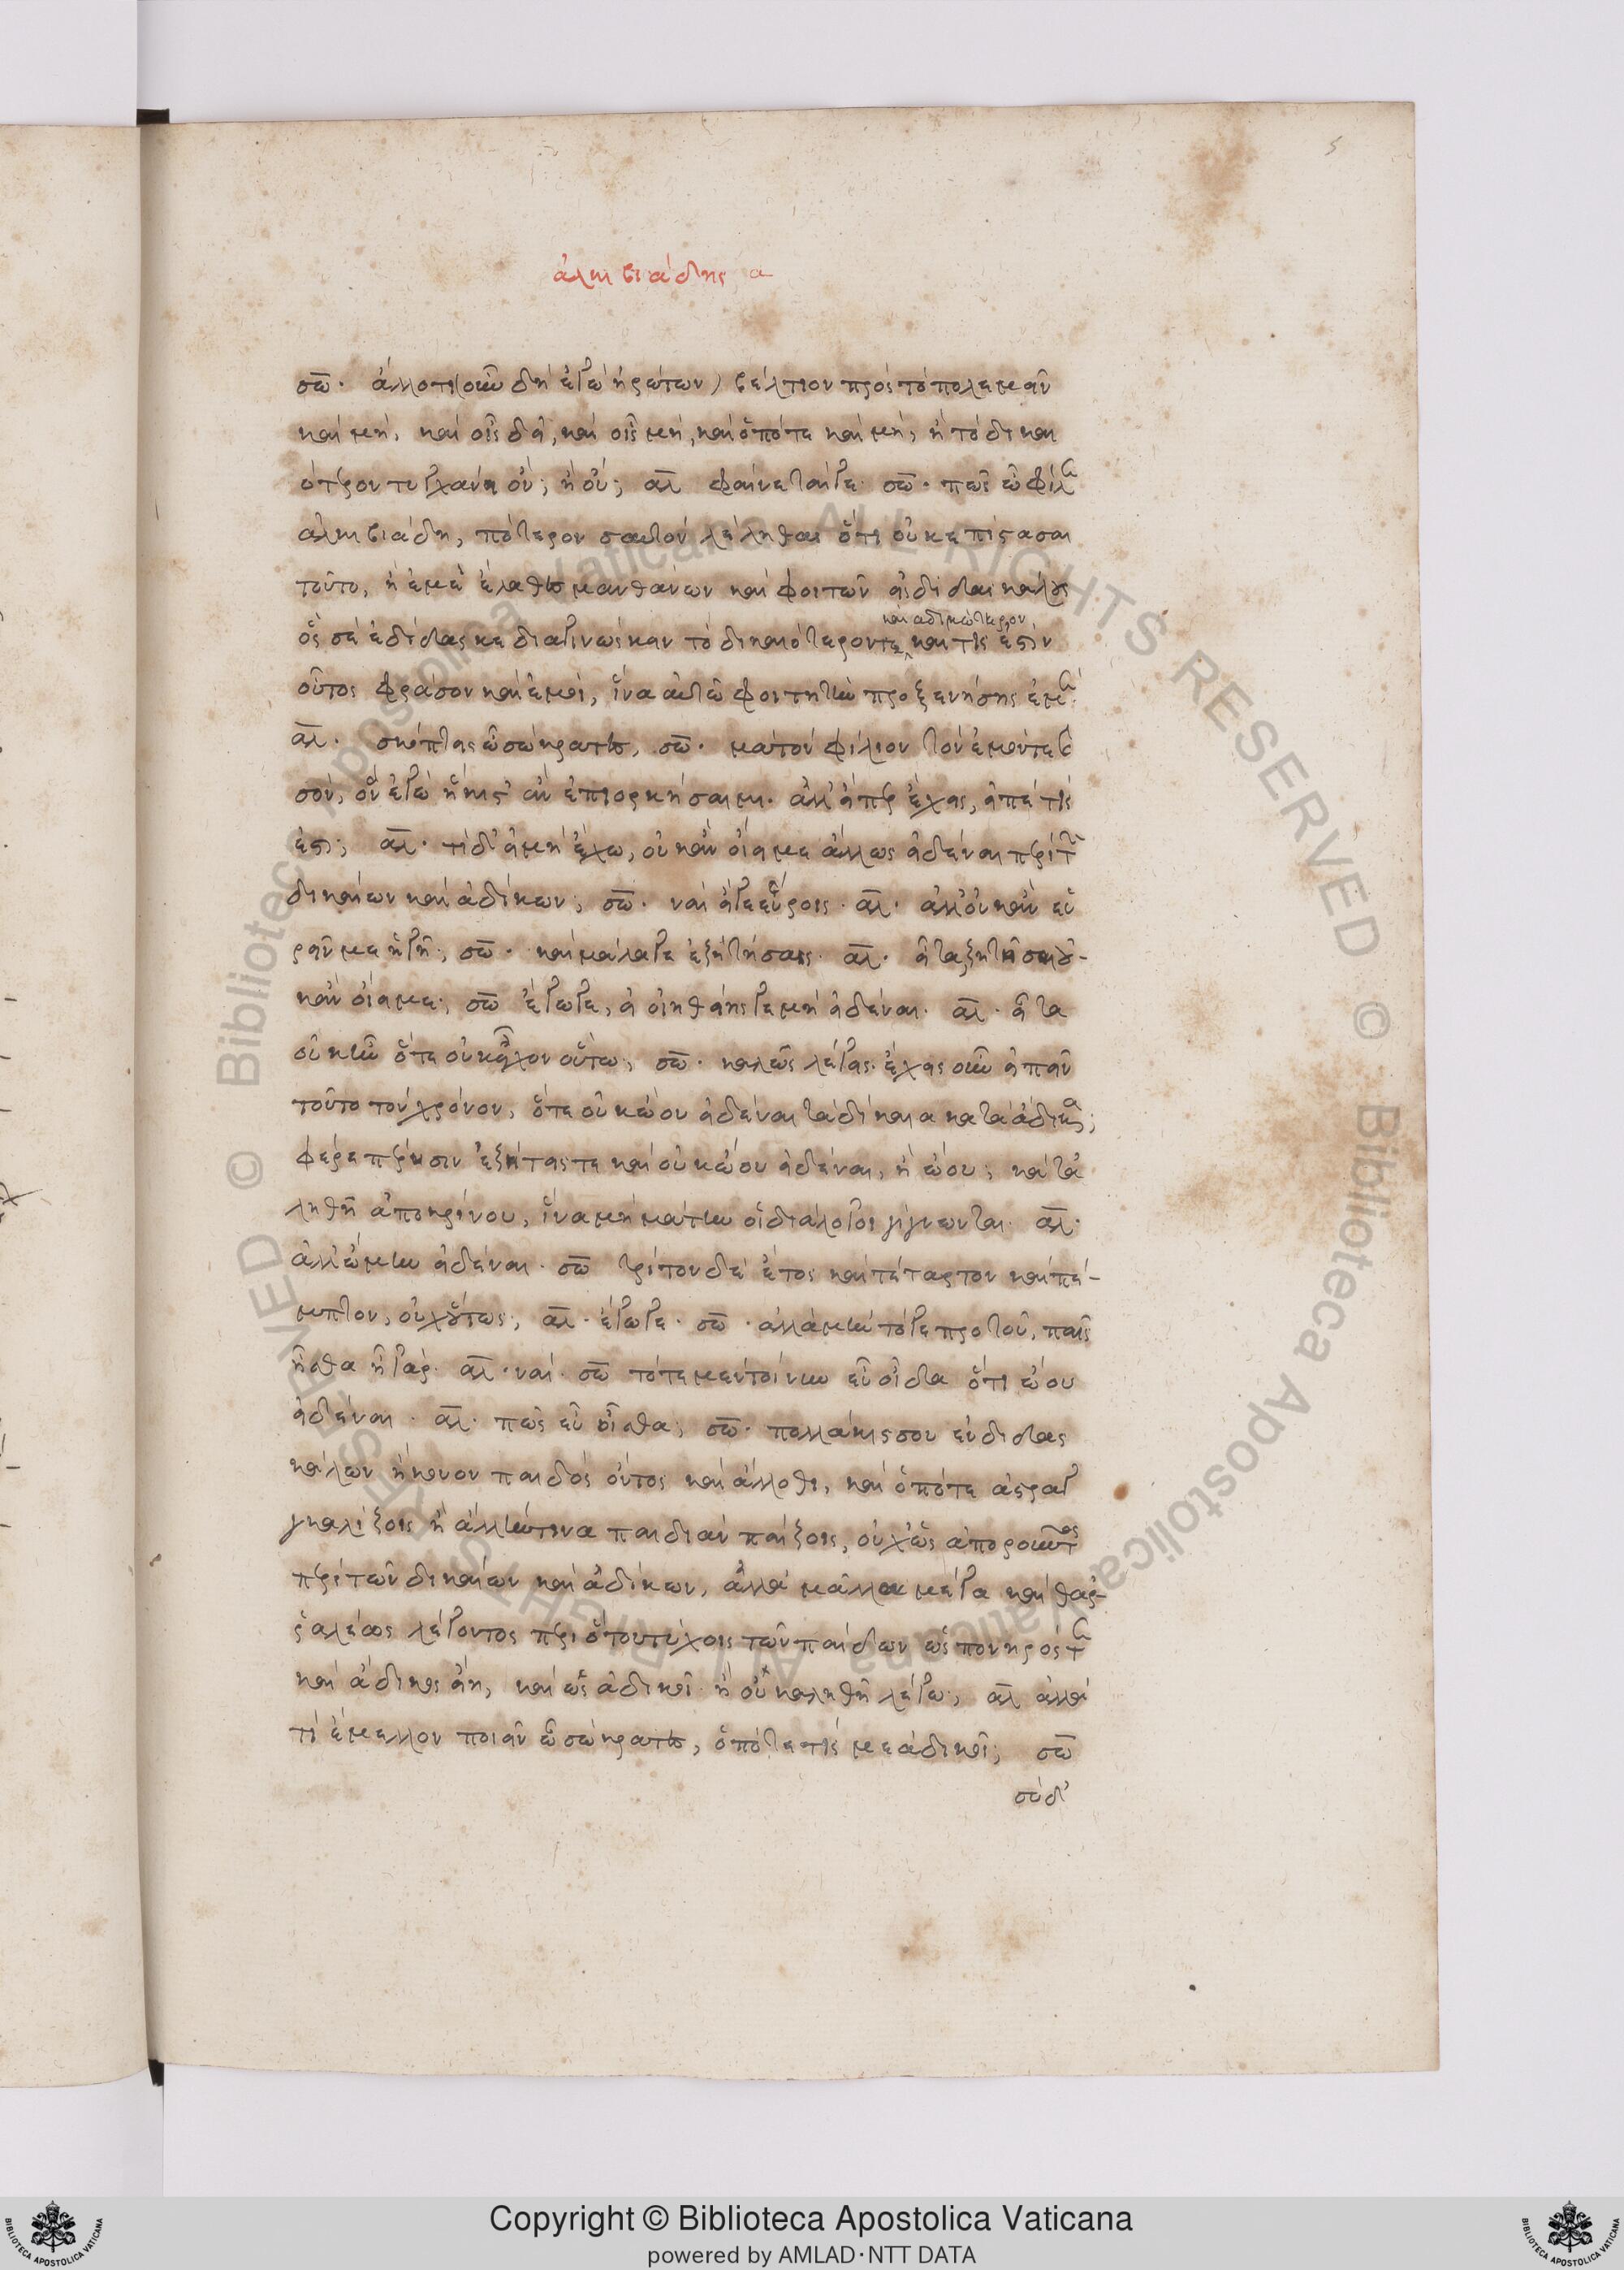 ς
ἀλκιβιάδης α
σω. ἄλλοτι οὖν δὴ ἐγὼ ἠρώτων βέλτιον πρὸς τὸ πολεμεῖν
καὶ μή, καὶ οἷς δεῖ, καὶ οἷς μή, καὶ ὁπότε καὶ μή, ἢ τὸ δικαι
ότερον τυγχάνει ὄν; ἢ οὔ; αλ φαίνεταί γε. σω. πῶς ὦ φίλε
ἀλκιβιάδη, πότερον σαυτὸν λέληθας ὅτι οὐκ ἐπίστασαι
τοῦτο, ἢ ἐμὲ ἔλαθες μανθάνων καὶ φοιτῶν εἰς διδασκάλου
καὶ ἀδικώτερον
ὅς σε ἐδίδασκε διαγινώσκειν τὸ δικαιότερόν τε καὶ τίς ἐστὶν
οὗτος φράσον καὶ ἐμοί, ἵνα αὐτῷ φοιτητὴν προξενήσῃς ἐμέ.
αλ. σκώπτεις ὦ σώκρατες, σω. μὰ τὸν φίλιον τὸν ἐμόν τε καὶ
σόν, ὃν ἐγὼ ἥκιστ' ἂν ἐπιορκήσαιμι. ἀλλ' εἴπερ ἔχεις, εἰπὲ τίς
ἐστι; αλ. τί δ' εἰ μὴ ἔχω, οὐκ ἂν οἴει με ἄλλως εἰδέναι περὶ τῶν
δικαίων καὶ ἀδίκων; σω. ναὶ εἴ γε εὕροις. αλ. ἀλλ' οὐκ ἂν εὑ
ρεῖν με ἡγῇ; σω. καὶ μάλα γε εἰ ζητήσαις. αλ. εἶτα ζητῆσαι οὐ-
κ ἂν οἴει με; σω ἔγωγε, εἰ οἰηθείης γε μὴ εἰδέναι. αλ. εἶτα
οὐκ ἦν ὅτε οὐκ εἶχον οὕτω; σω. καλῶς λέγεις. ἔχεις οὖν εἰπεῖν
τοῦτο τὸν χρόνον, ὅτε οὐκ ᾤου εἰδέναι τὰ δίκαια κα τὰ ἄδικα;
φέρε πέρυσιν ἐζήτεις τε καὶ οὐκ ᾤου εἰδέναι, ἢ ᾤου; καὶ τἀ
ληθῆ ἀποκρίνου, ἵνα μὴ μάτην οἱ διάλογοι γίγνωνται. αλ.
ἀλλ' ᾤμην εἰδέναι. σω τρίτον δὲ ἔτος καὶ τέταρτον καὶ πέ-
μπτον, οὐχ οὕτως; αλ. ἔγωγε. σω. ἀλλὰ μὴν τό γε πρὸ τοῦ, παῖς
ἦσθα ἦ γάρ. αλ. ναί. σω τότε μὲν τοίνυν εὖ οἶδα ὅτι ᾤου
εἰδέναι. αλ. πῶς εὖ οἶσθα; σω. πολλάκις σου ἐν διδας
κάλων ἤκουον παιδὸς ὄντος καὶ ἄλλοθι, καὶ ὁπότε ἀστραγ
γαλίζοις ἢ ἄλλην τινα παιδιὰν παίζοις, οὐχ ὡς ἀποροῦντος
περὶ τῶν δικαίων καὶ ἀδίκων, ἀλλὰ μάλλα μέγα καὶ θαρ-
ραλέως λέγοντος περὶ ὅτου τύχοις τῶν παίδων ὡς πονηρός τε
καὶ ἄδικος εἴη, καὶ ὡς ἀδικοῖ. ἢ οὐκ ἀληθῆ λέγω; αλ ἀλλὰ
τί ἔμελλον ποιεῖν ὦ σώκρατες, ὁπότε τίς με ἀδικοῖ; σω
σὺ δ'
Copyright © Biblioteca Apostolica Vaticana
powered by AMLAD·NTT DATA